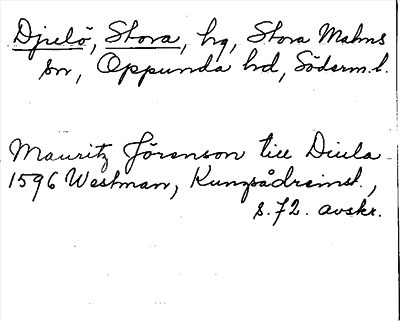 Djulö, Stora, hg, Stora Malms
sn, Oppunda hd, Söderm.l.
Mauritz Jörenson till Diula
1596 Westman, Kungsådreinst.,
s.72. avskr.